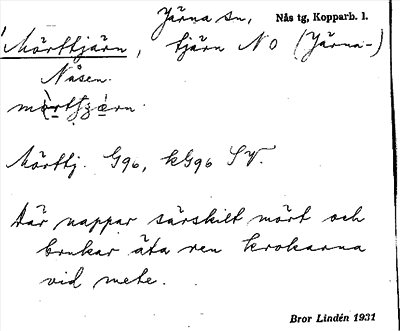 Järna sn, Nås tg, Kopparb. l.
Mörttjärn, tjärn NO (Järna-)
Nåsen.
Mörttj. G96, kG96 SV.
Där nappar särskilt mört och
brukar äta ren krokarna
vid mete.
Bror Lindén 1931